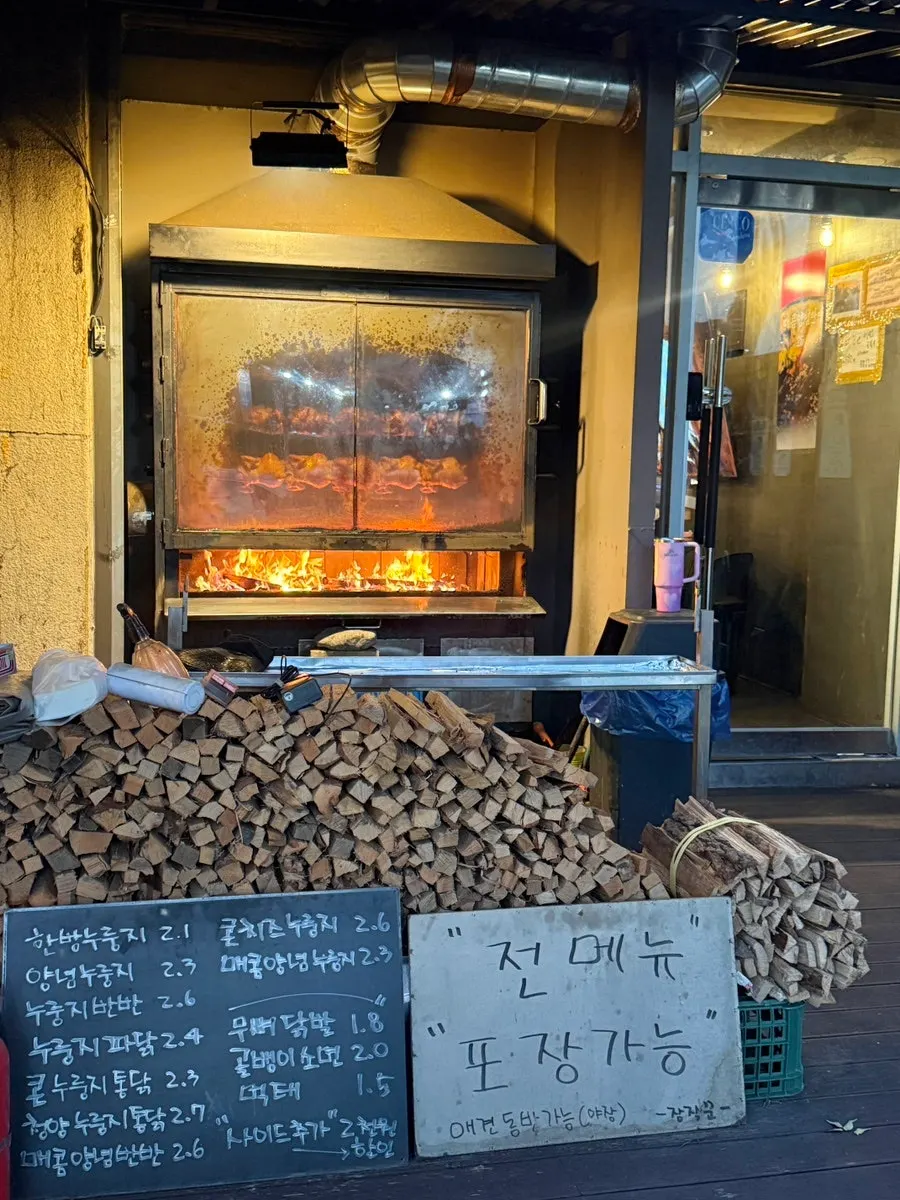 한방누룽지 2.1
양념누룽지 2.3
누룽지반반 2.6
누룽지파닭 2.4
콘누룽지통닭 2.3
청양누룽지통닭 2.7
매콤양념반반 2.6
콘치즈누룽지 2.6
매콤양념누룽지 2.3
무뼈닭발 1.8
골뱅이소면 2.0
먹태 1.5
"사이드추가" 2천원
할인
"전메뉴"
"포장가능"
애견동반가능(야장) -장작꾼-